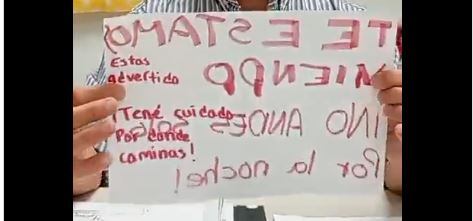 ¡TE ESTAMOS
VIENDO
NO ANDES
Por la noche!
Estas
advertido
¡Tené cuidado
Por donde
caminas!